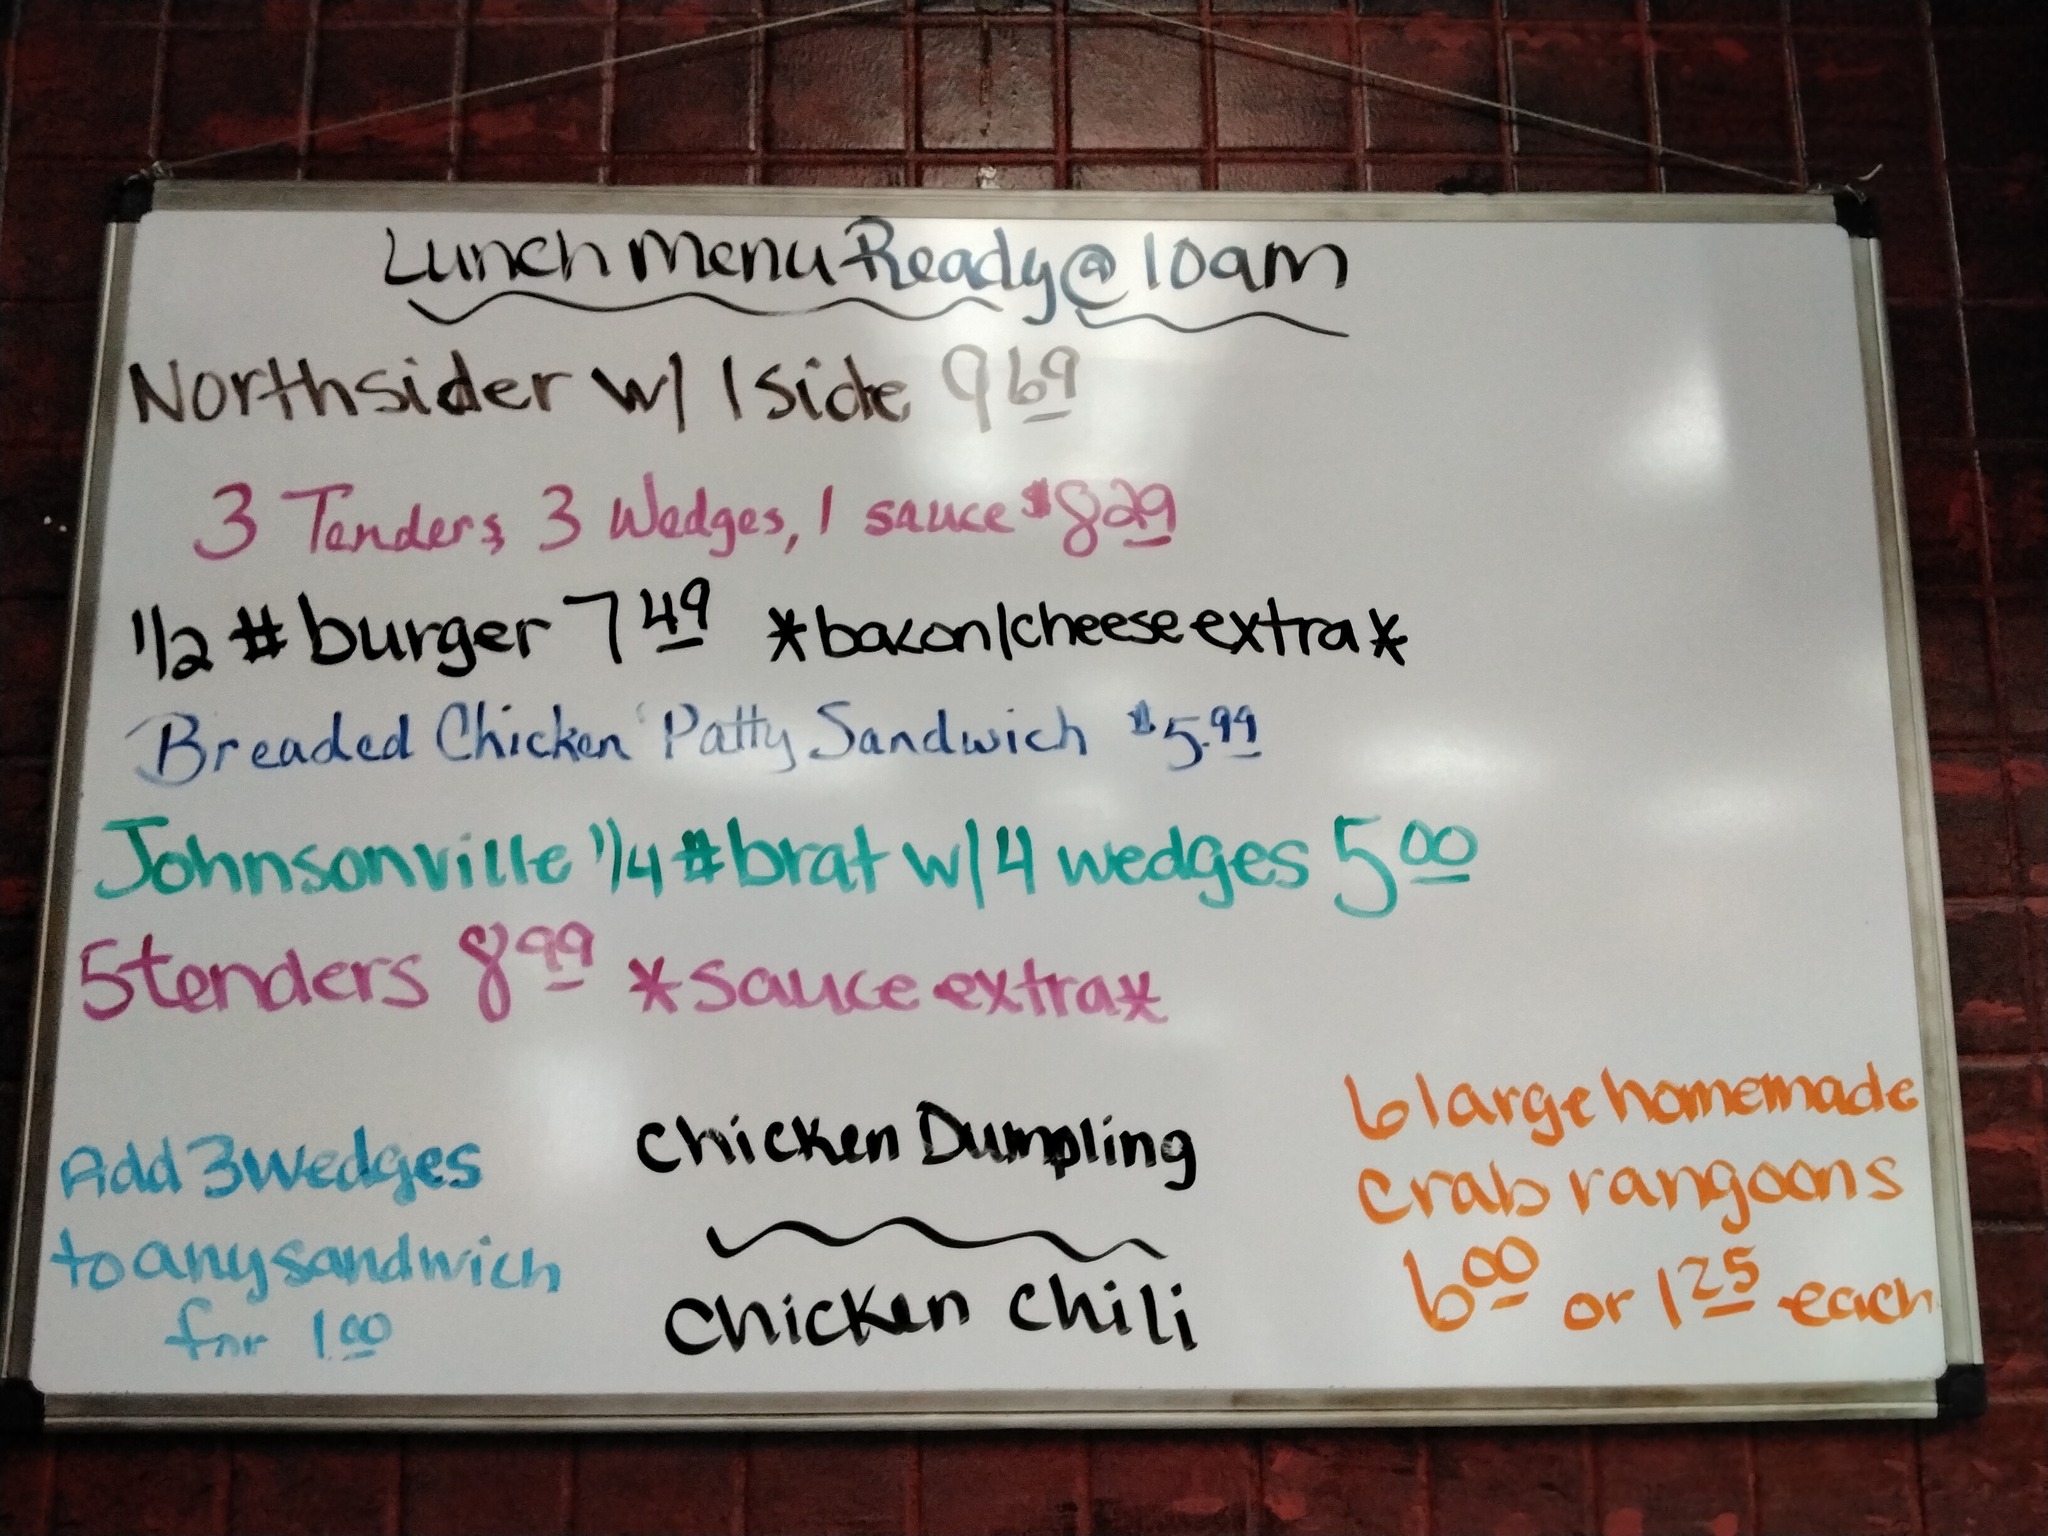 Lunch Menu Ready @ 10am
Northsider w/ 1 side 9 69
3 Tenders, 3 Wedges, 1 sauce $8 29
1/2 # burger 7 49 *bacon/cheese extra*
Breaded Chicken Patty Sandwich $5.99
Johnsonville 1/4 # brat w/ 4 wedges 5 00
5 tenders 8 99 *sauce extra*
Add 3 wedges
to any sandwich
for 1.00
Chicken Dumpling
Chicken Chili
6 large homemade
crab rangoons
6 00 or 1 25 each